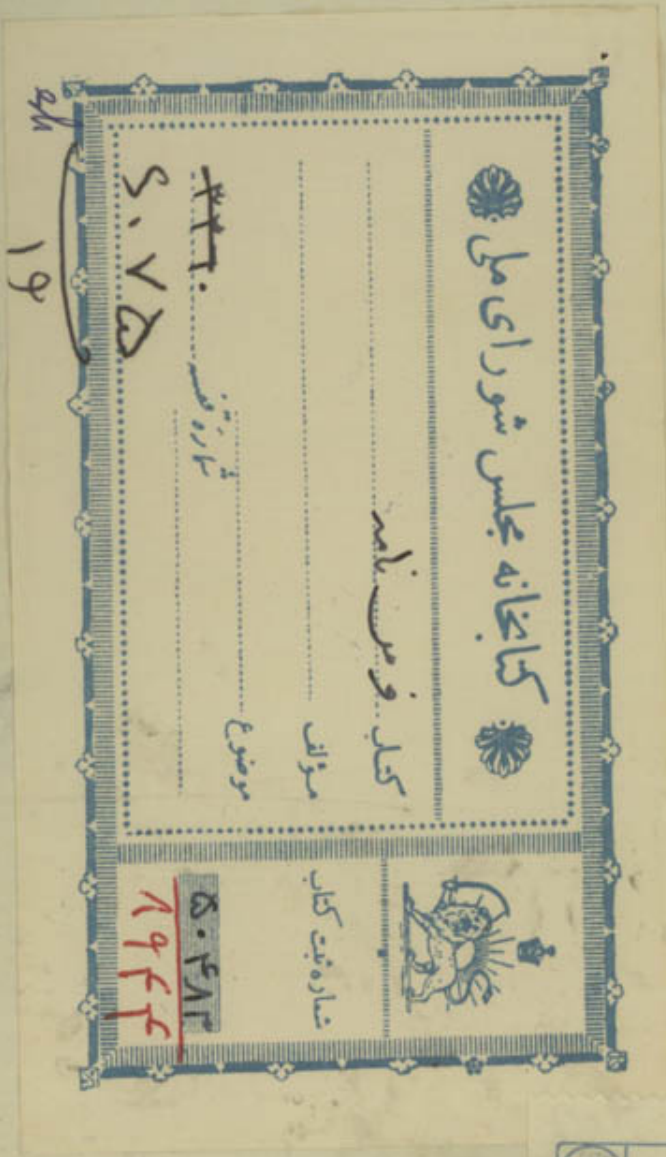 کتابخانه مجلس شورای ملی
کتاب فرس نامه
مؤلف
موضوع
شماره قفسه
۳۳۲۰
۶۰۷۵
۱۶
شماره ثبت کتاب
۵۰۴۸۳
۸۹۴۴